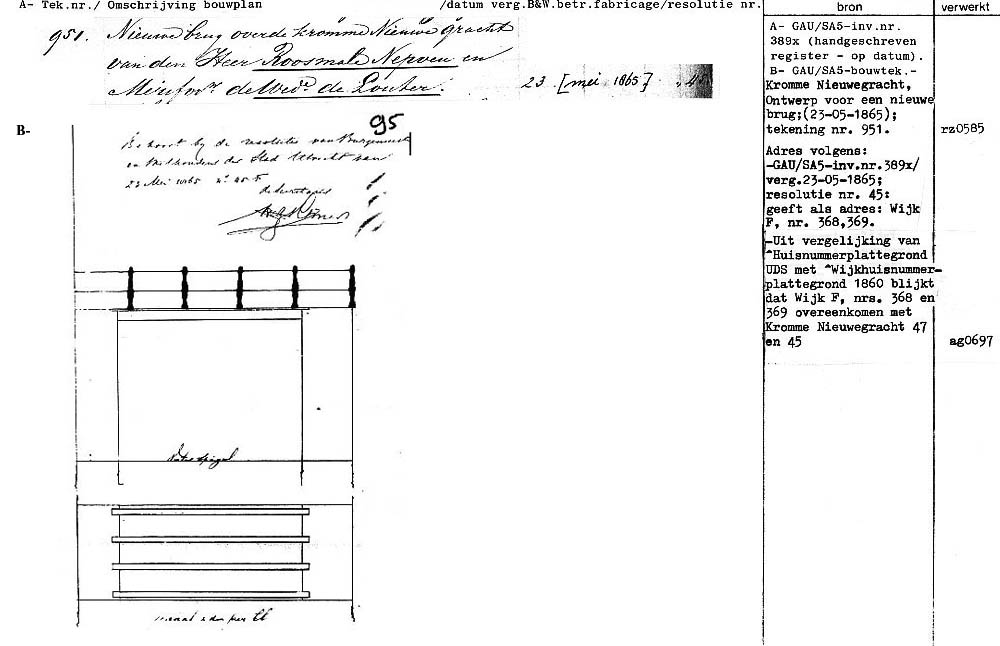 A- Tek.nr./ Omschrijving bouwplan /datum verg.B&W.betr.fabricage/resolutie nr.
bron
verwerkt
951. Nieuwe brug over de Kromme Nieuwe gracht
van den Heer Roosmale Nepveu en
de Louter.
23 [mei 1865]
B-
95
Behoort bij de resolutie van Burgemeester
en Wethouders der Stad Utrecht van
23 Mei 1865 nº 45 F
de Secretaris
Waterspiegel
A- GAU/SA5-inv.nr.
389x (handgeschreven
register - op datum).
B- GAU/SA5-bouwtek.-
Kromme Nieuwegracht,
Ontwerp voor een nieuwe
brug;(23-05-1865);
tekening nr. 951.
rz0585
Adres volgens:
-GAU/SA5-inv.nr.389x/
verg.23-05-1865;
resolutie nr. 45:
geeft als adres: Wijk
F, nr. 368,369.
-Uit vergelijking van
"Huisnummerplattegrond
UDS met "Wijkhuisnummer-
plattegrond 1860 blijkt
dat Wijk F, nrs. 368 en
369 overeenkomen met
Kromme Nieuwegracht 47
en 45
ag0697